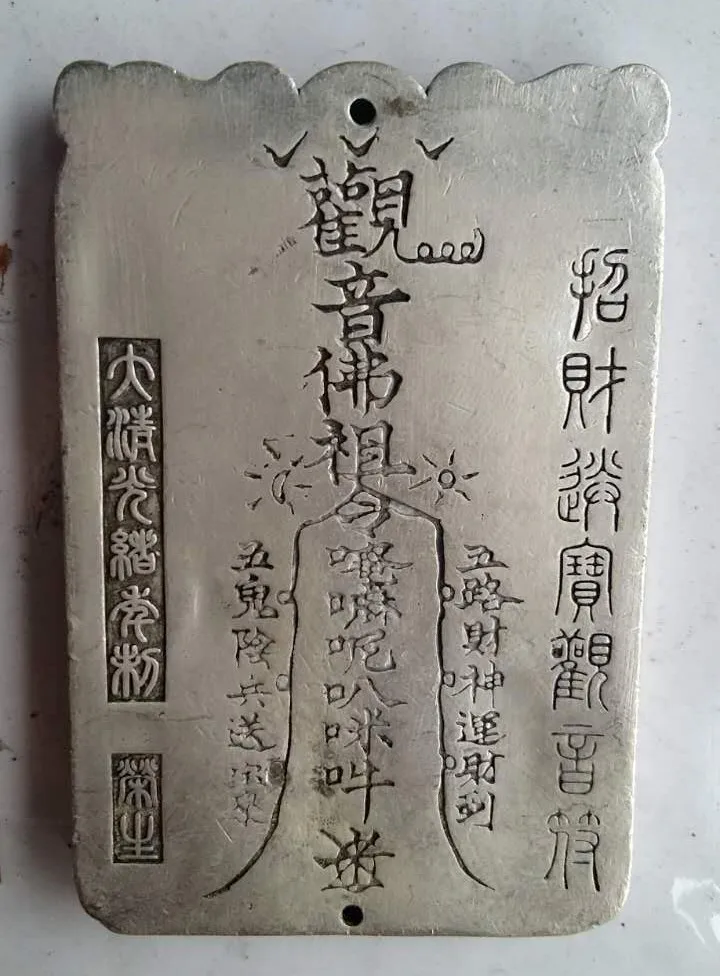 招財進寶觀音符
五路財神運財到
觀音佛祖令唵嘛呢叭咪吽
五鬼陰兵送
大清光緒年制
榮生